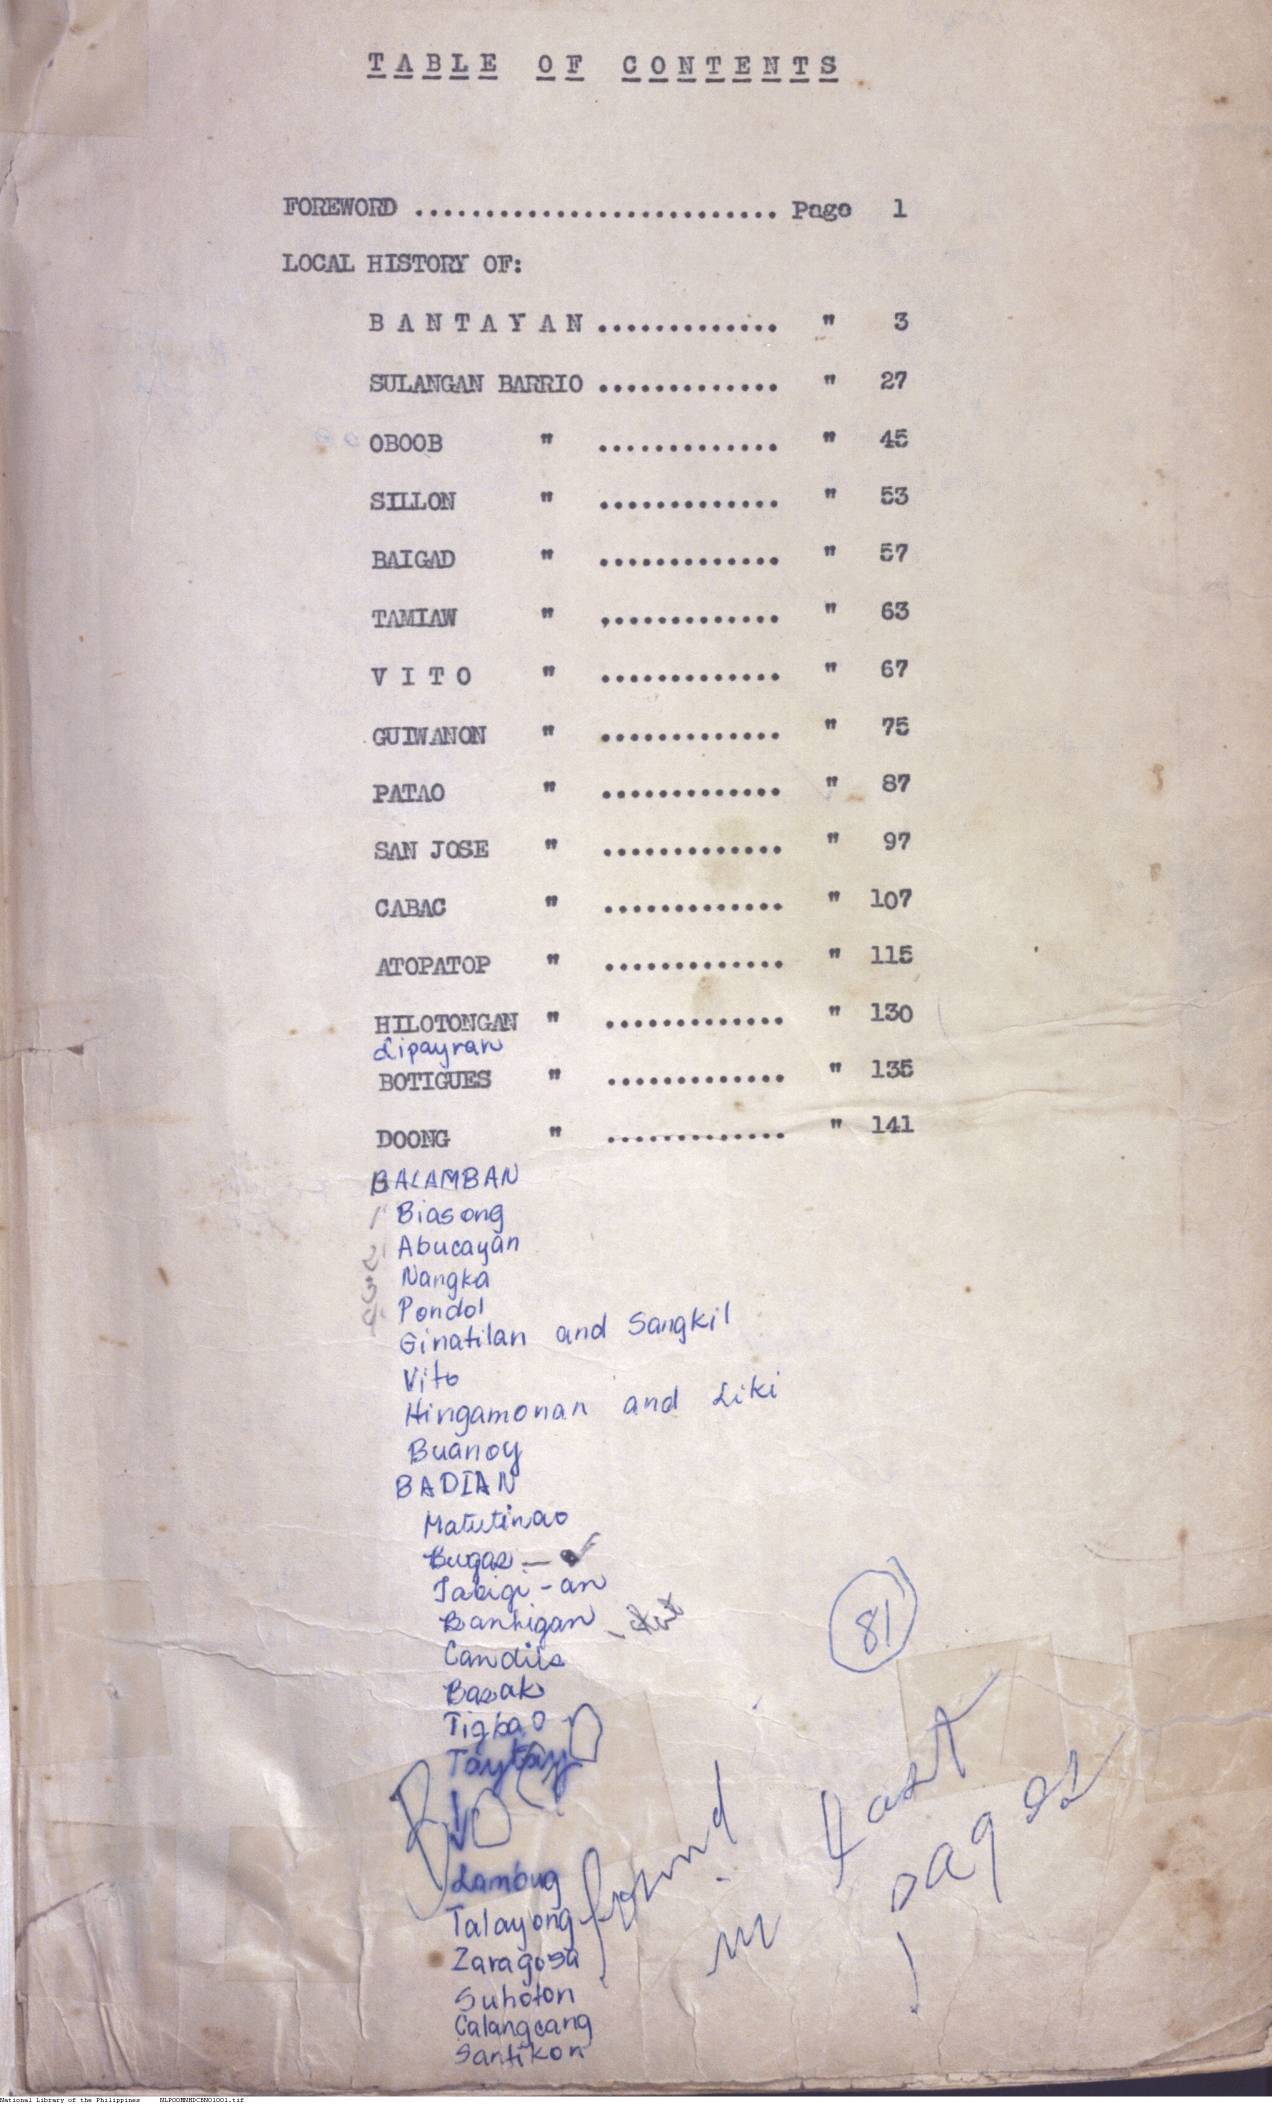 TABLE OF CONTENTS
FOREWORD .......................... Page 1
LOCAL HISTORY OF:
BANTAYAN ............. " 3
SULANGAN BARRIO ............. " 27
OBOOB " ............. " 45
SILLON " ............. " 53
BAIGAD " ............. " 57
TAMIAW " ,............ " 63
VITO " ............. " 67
GUIWANON " ............. " 75
PATAO " ............. " 87
SAN JOSE " ............. " 97
CABAC " ............. " 107
ATOPATOP " ............. " 115
HILOTONGAN " ............. " 130
Lipayran
BOTIGUES " ............. " 135
DOONG " ............. " 141
BALAMBAN
1 Biasong
2 Abucayan
3 Nangka
4 Pondol
Ginatilan and Sangkil
Vito
Hingamonan and Liki
Buanoy
BADIAN
Matutinao
Bugas —
Tabigi-an
Banhigan -
Candiis
Basak
Tigbao
Taytay
Lambug
Talayong
Zaragosa
Suhoton
Calangcang
Santikon
81
found in last pages!
National Library of the Philippines NLPOOMNHDCBN01001.tif